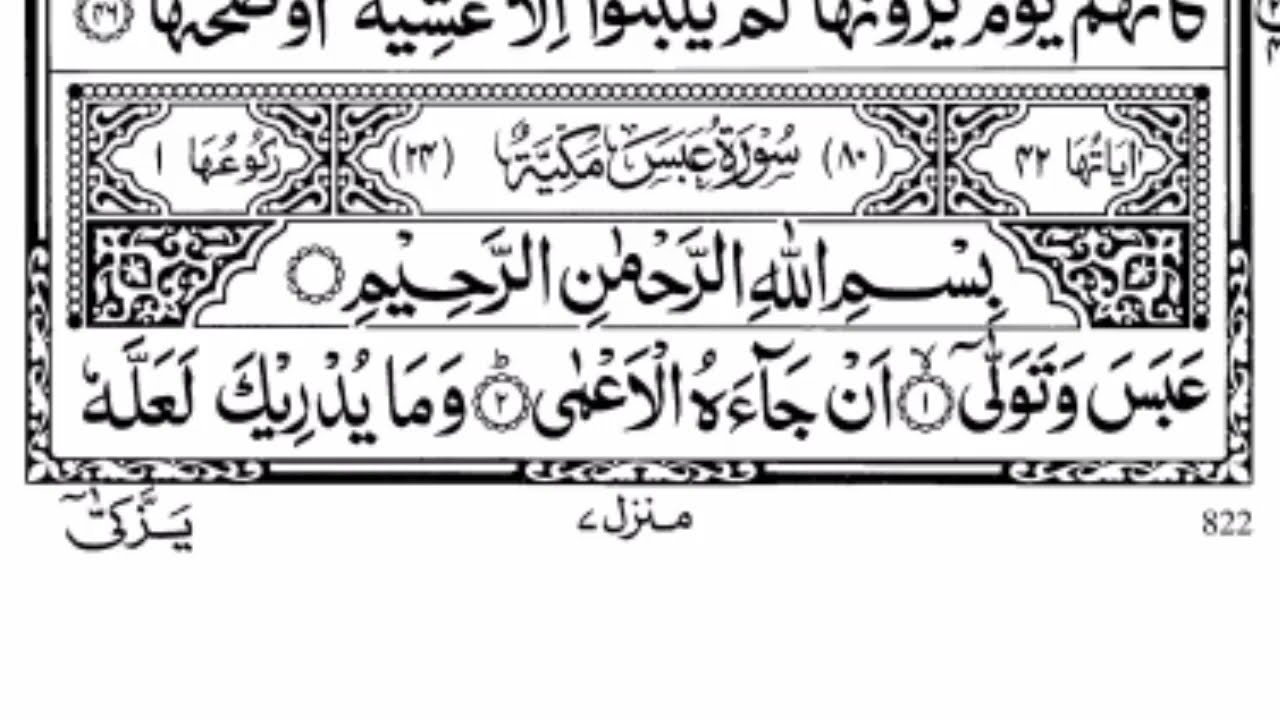 كَاَنَّهُمْ يَوْمَ يَرَوْنَهَا لَمْ يَلْبَثُوْۤا اِلَّا عَشِيَّةً اَوْ ضُحٰىهَا
اٰيَاتُهَا ۴۲ (۸۰) سُوْرَةُ عَبَسَ مَكِّيَّةٌ (۲۴) رُكُوْعُهَا ۱
بِسْمِ اللّٰهِ الرَّحْمٰنِ الرَّحِيْمِ
عَبَسَ وَتَوَلّٰىۤ ۙ﴿۱﴾ اَنْ جَآءَهُ الْاَعْمٰى ؕ﴿۲﴾ وَمَا يُدْرِيْكَ لَعَلَّهٗ
يَزَّكّٰىۤ منزل ۷ 822